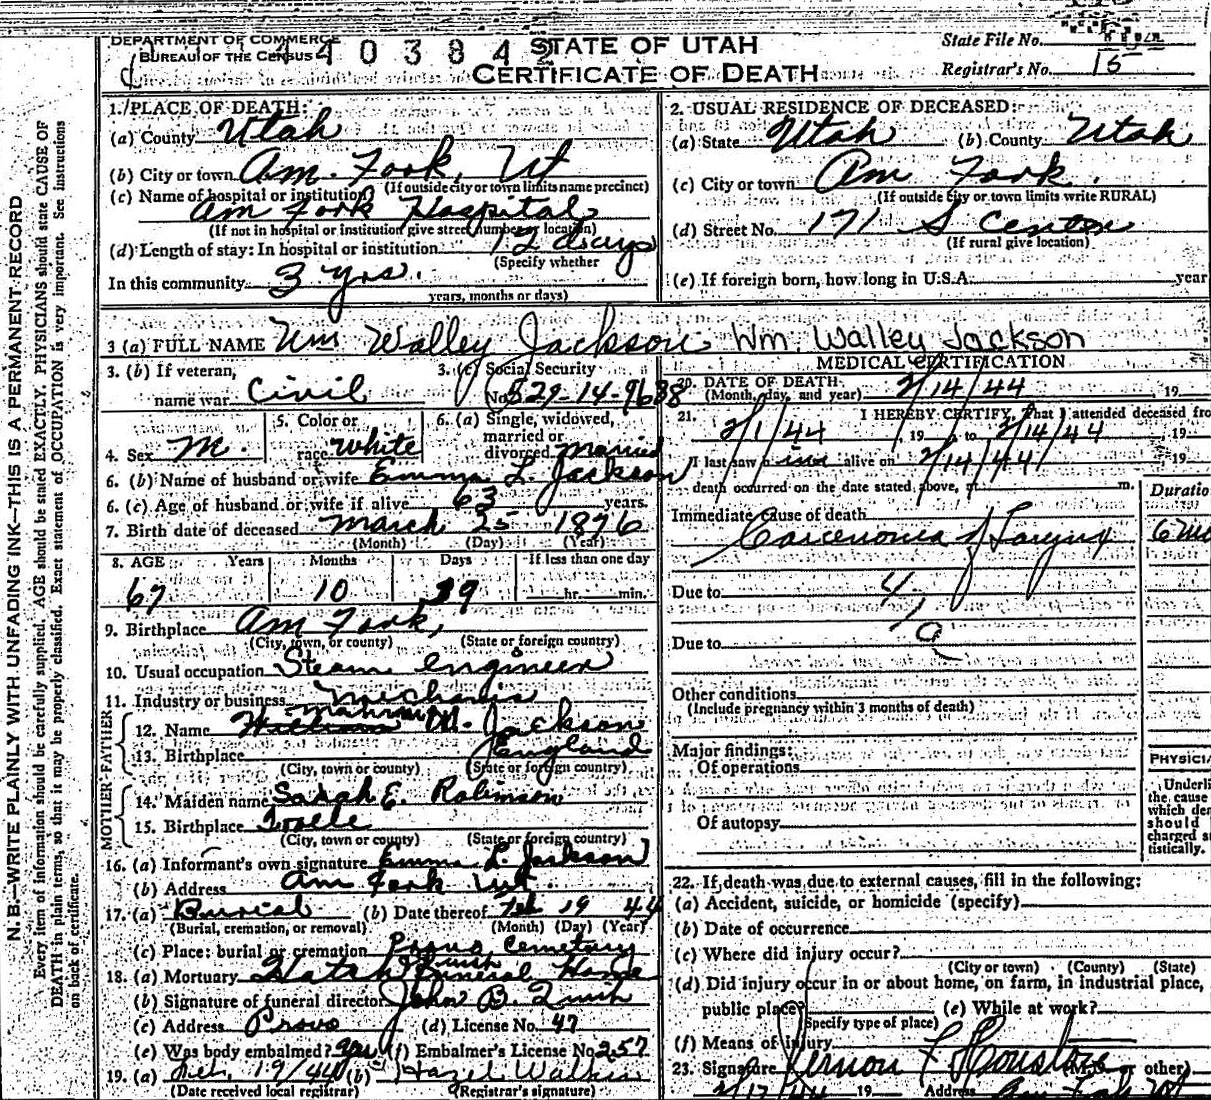 DEPARTMENT OF COMMERCE
BUREAU OF THE CENSUS
4 4 0 3 8 4 2
STATE OF UTAH
CERTIFICATE OF DEATH
State File No.
Registrar's No. 15
N. B.—WRITE PLAINLY WITH UNFADING INK—THIS IS A PERMANENT RECORD
Every item of information should be carefully supplied. AGE should be stated EXACTLY. PHYSICIANS should state CAUSE OF
DEATH in plain terms, so that it may be properly classified. Exact statement of OCCUPATION is very important. See Instructions
on back of certificate.
1. PLACE OF DEATH:
(a) County Utah
(b) City or town Am. Fork, Ut
(If outside city or town limits name precinct)
(c) Name of hospital or institution?
Am Fork Hospital
(If not in hospital or institution give street number or location)
(d) Length of stay: In hospital or institution 12 days
(Specify whether
In this community 3 yrs.
years, months or days)
2. USUAL RESIDENCE OF DECEASED:
(a) State Utah (b) County Utah
(c) City or town Am Fork.
(If outside city or town limits write RURAL)
(d) Street No. 171 S Center
(If rural give location)
(e) If foreign born, how long in U.S.A. year
3 (a) FULL NAME Wm Walley Jackson Wm. Walley Jackson
3. (b) If veteran,
name war Civil
3. (c) Social Security
No. 529-14-9688
4. Sex M.
5. Color or
race White
6. (a) Single, widowed,
married or
divorced married
6. (b) Name of husband or wife Emma L. Jackson
6. (c) Age of husband or wife if alive 63 years.
7. Birth date of deceased March 25 1876
(Month) (Day) (Year)
8. AGE Years Months Days If less than one day
67 10 hr. min.
9. Birthplace Am Fork,
(City, town, or county) (State or foreign country)
10. Usual occupation Steam engineer
11. Industry or business Mechanic
MOTHER FATHER
12. Name William M. Jackson
13. Birthplace England
(City, town or county) (State or foreign country)
14. Maiden name Sarah E. Robinson
15. Birthplace
(City, town or county) (State or foreign country)
16. (a) Informant's own signature Emma L. Jackson
(b) Address Am Fork Ut.
17. (a) Burial (b) Date thereof Feb 19 44
(Burial, cremation, or removal) (Month) (Day) (Year)
(c) Place: burial or cremation Provo Cemetery
18. (a) Mortuary Funeral Home
(b) Signature of funeral director John B.
(c) Address Provo (d) License No. 47
(e) Was body embalmed? yes (f) Embalmer's License No. 257
19. (a) 19/44 (b) Hazel
(Date received local registrar) (Registrar's signature)
MEDICAL CERTIFICATION
20. DATE OF DEATH 2/14/44 19
(Month, day, and year)
21. I HEREBY CERTIFY, That I attended deceased fro
2/1/44, 19 to 2/14/44, 19
I last saw him alive on 2/14/44, 19
death occurred on the date stated above, at m.
Duratio
Immediate Cause of death
Carcenonia of Larynx 6 mo
Due to
Due to
Other conditions
(Include pregnancy within 3 months of death)
Major findings:
Of operations
Of autopsy
PHYSICIA
Underli
the cause
which dea
should
charged st
tistically.
22. If death was due to external causes, fill in the following:
(a) Accident, suicide, or homicide (specify)
(b) Date of occurrence
(c) Where did injury occur?
(City or town) (County) (State)
(d) Did injury occur in or about home, on farm, in industrial place,
public place? (e) While at work?
(Specify type of place)
(f) Means of injury
23. Signature Vernon F Houston (M. D. or other)
2/17/44 19 Address Am Fork Ut